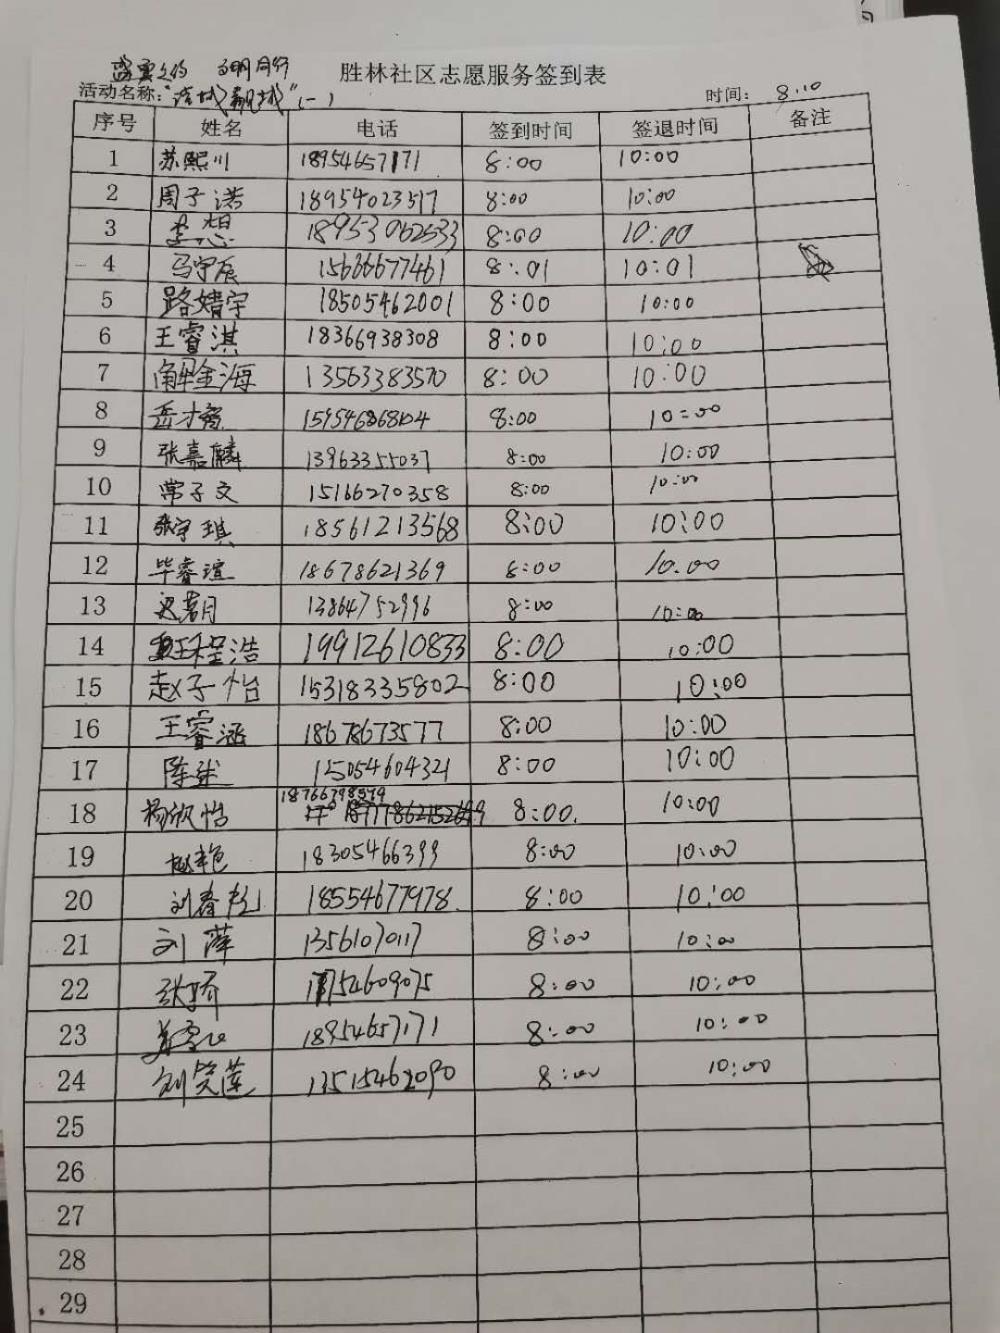 胜林社区志愿服务签到表
活动名称： 时间：8.10
序号 姓名 电话 签到时间 签退时间 备注
1 苏熙川 18954657171 8:00 10:00
2 周子诺 18954023517 8:00 10:00
3 李想 18953062533 8:00 10:00
4 马宇辰 15666677461 8:01 10:01
5 路婧宇 18505462001 8:00 10:00
6 王睿淇 18366938308 8:00 10:00
7 解金海 13563383570 8:00 10:00
8 15954686804 8:00 10:00
9 张嘉麟 13963355037 8:00 10:00
10 常子文 15166270358 8:00 10:00
11 张宇琪 18561213568 8:00 10:00
12 毕睿瑄 18678621369 8:00 10:00
13 13864752996 8:00 10:00
14 王程浩 19912610833 8:00 10:00
15 赵子怡 15318335802 8:00 10:00
16 王睿涵 18678673577 8:00 10:00
17 15054604321 8:00 10:00
18 杨欣怡 18766798579 8:00. 10:00
19 赵艳 18305466399 8:00 10:00
20 18554677978 8:00 10:00
21 刘萍 13561070117 8:00 10:00
22 张娇 8:00 10:00
23 18954657171 8:00 10:00
24 刘笑莲 13515462090 8:00 10:00
25
26
27
28
29